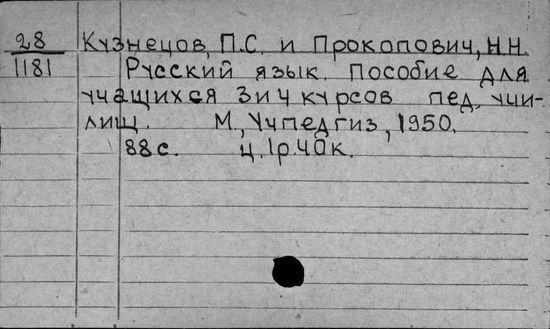 28 Кузнецов, П.С. и Прокопович, Н.Н.
1181 Русский язык. Пособие для
учащихся 3 и 4 курсов пед. учи-
лищ. М., Учпедгиз, 1950.
88 с. ц. 1р. 40к.